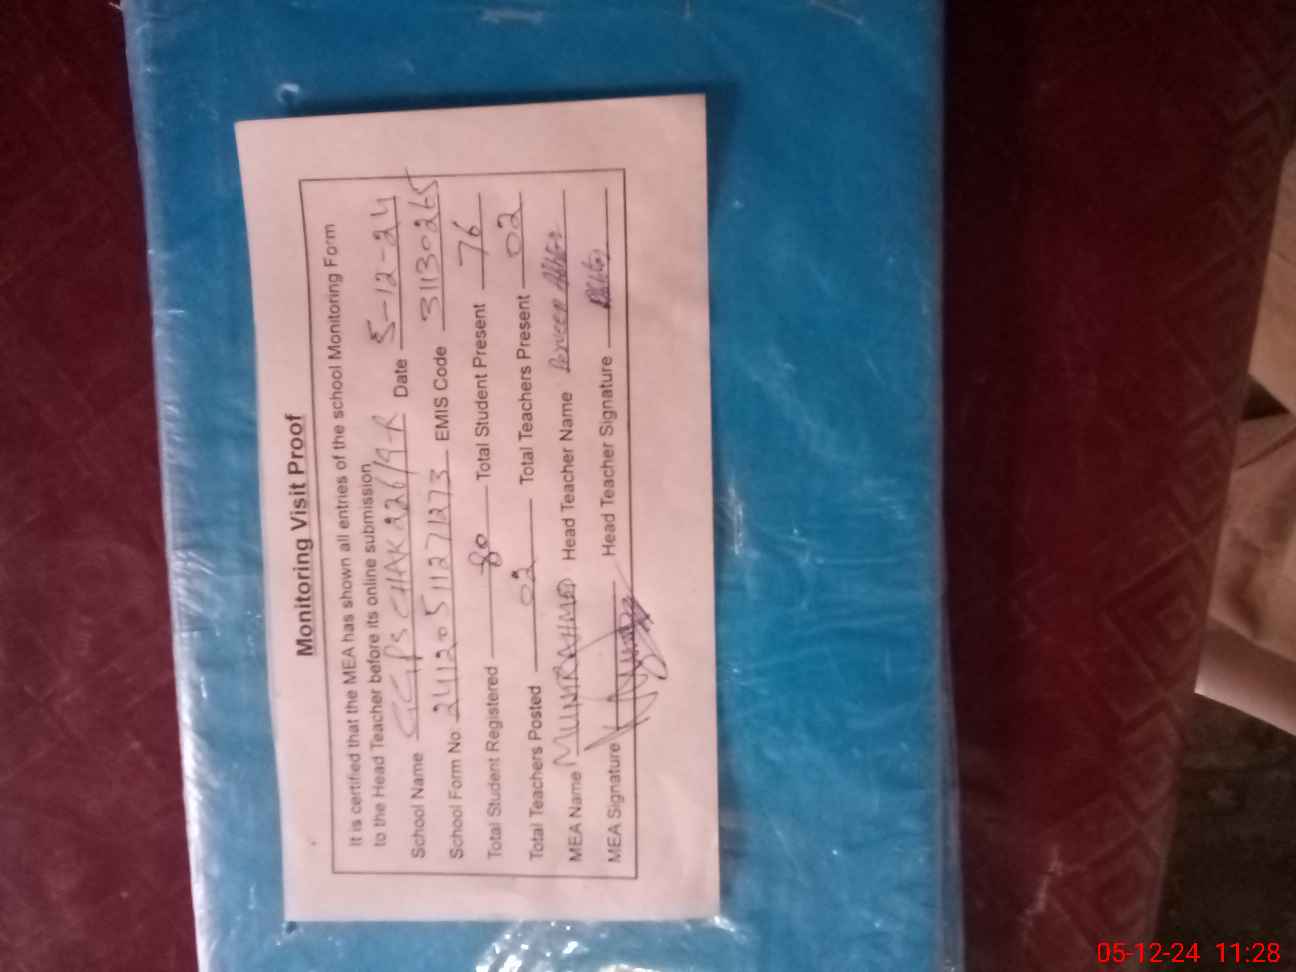 Monitoring Visit Proof
It is certified that the MEA has shown all entries of the school Monitoring Form
to the Head Teacher before its online submission
School Name GGPS CHAK 226/9-R Date 5-12-24
School Form No 241120511271273 EMIS Code 31130265
Total Student Registered 80 Total Student Present 76
Total Teachers Posted 02 Total Teachers Present 02
MEA Name Head Teacher Name Perveen Akhter
MEA Signature Head Teacher Signature
05-12-24 11:28